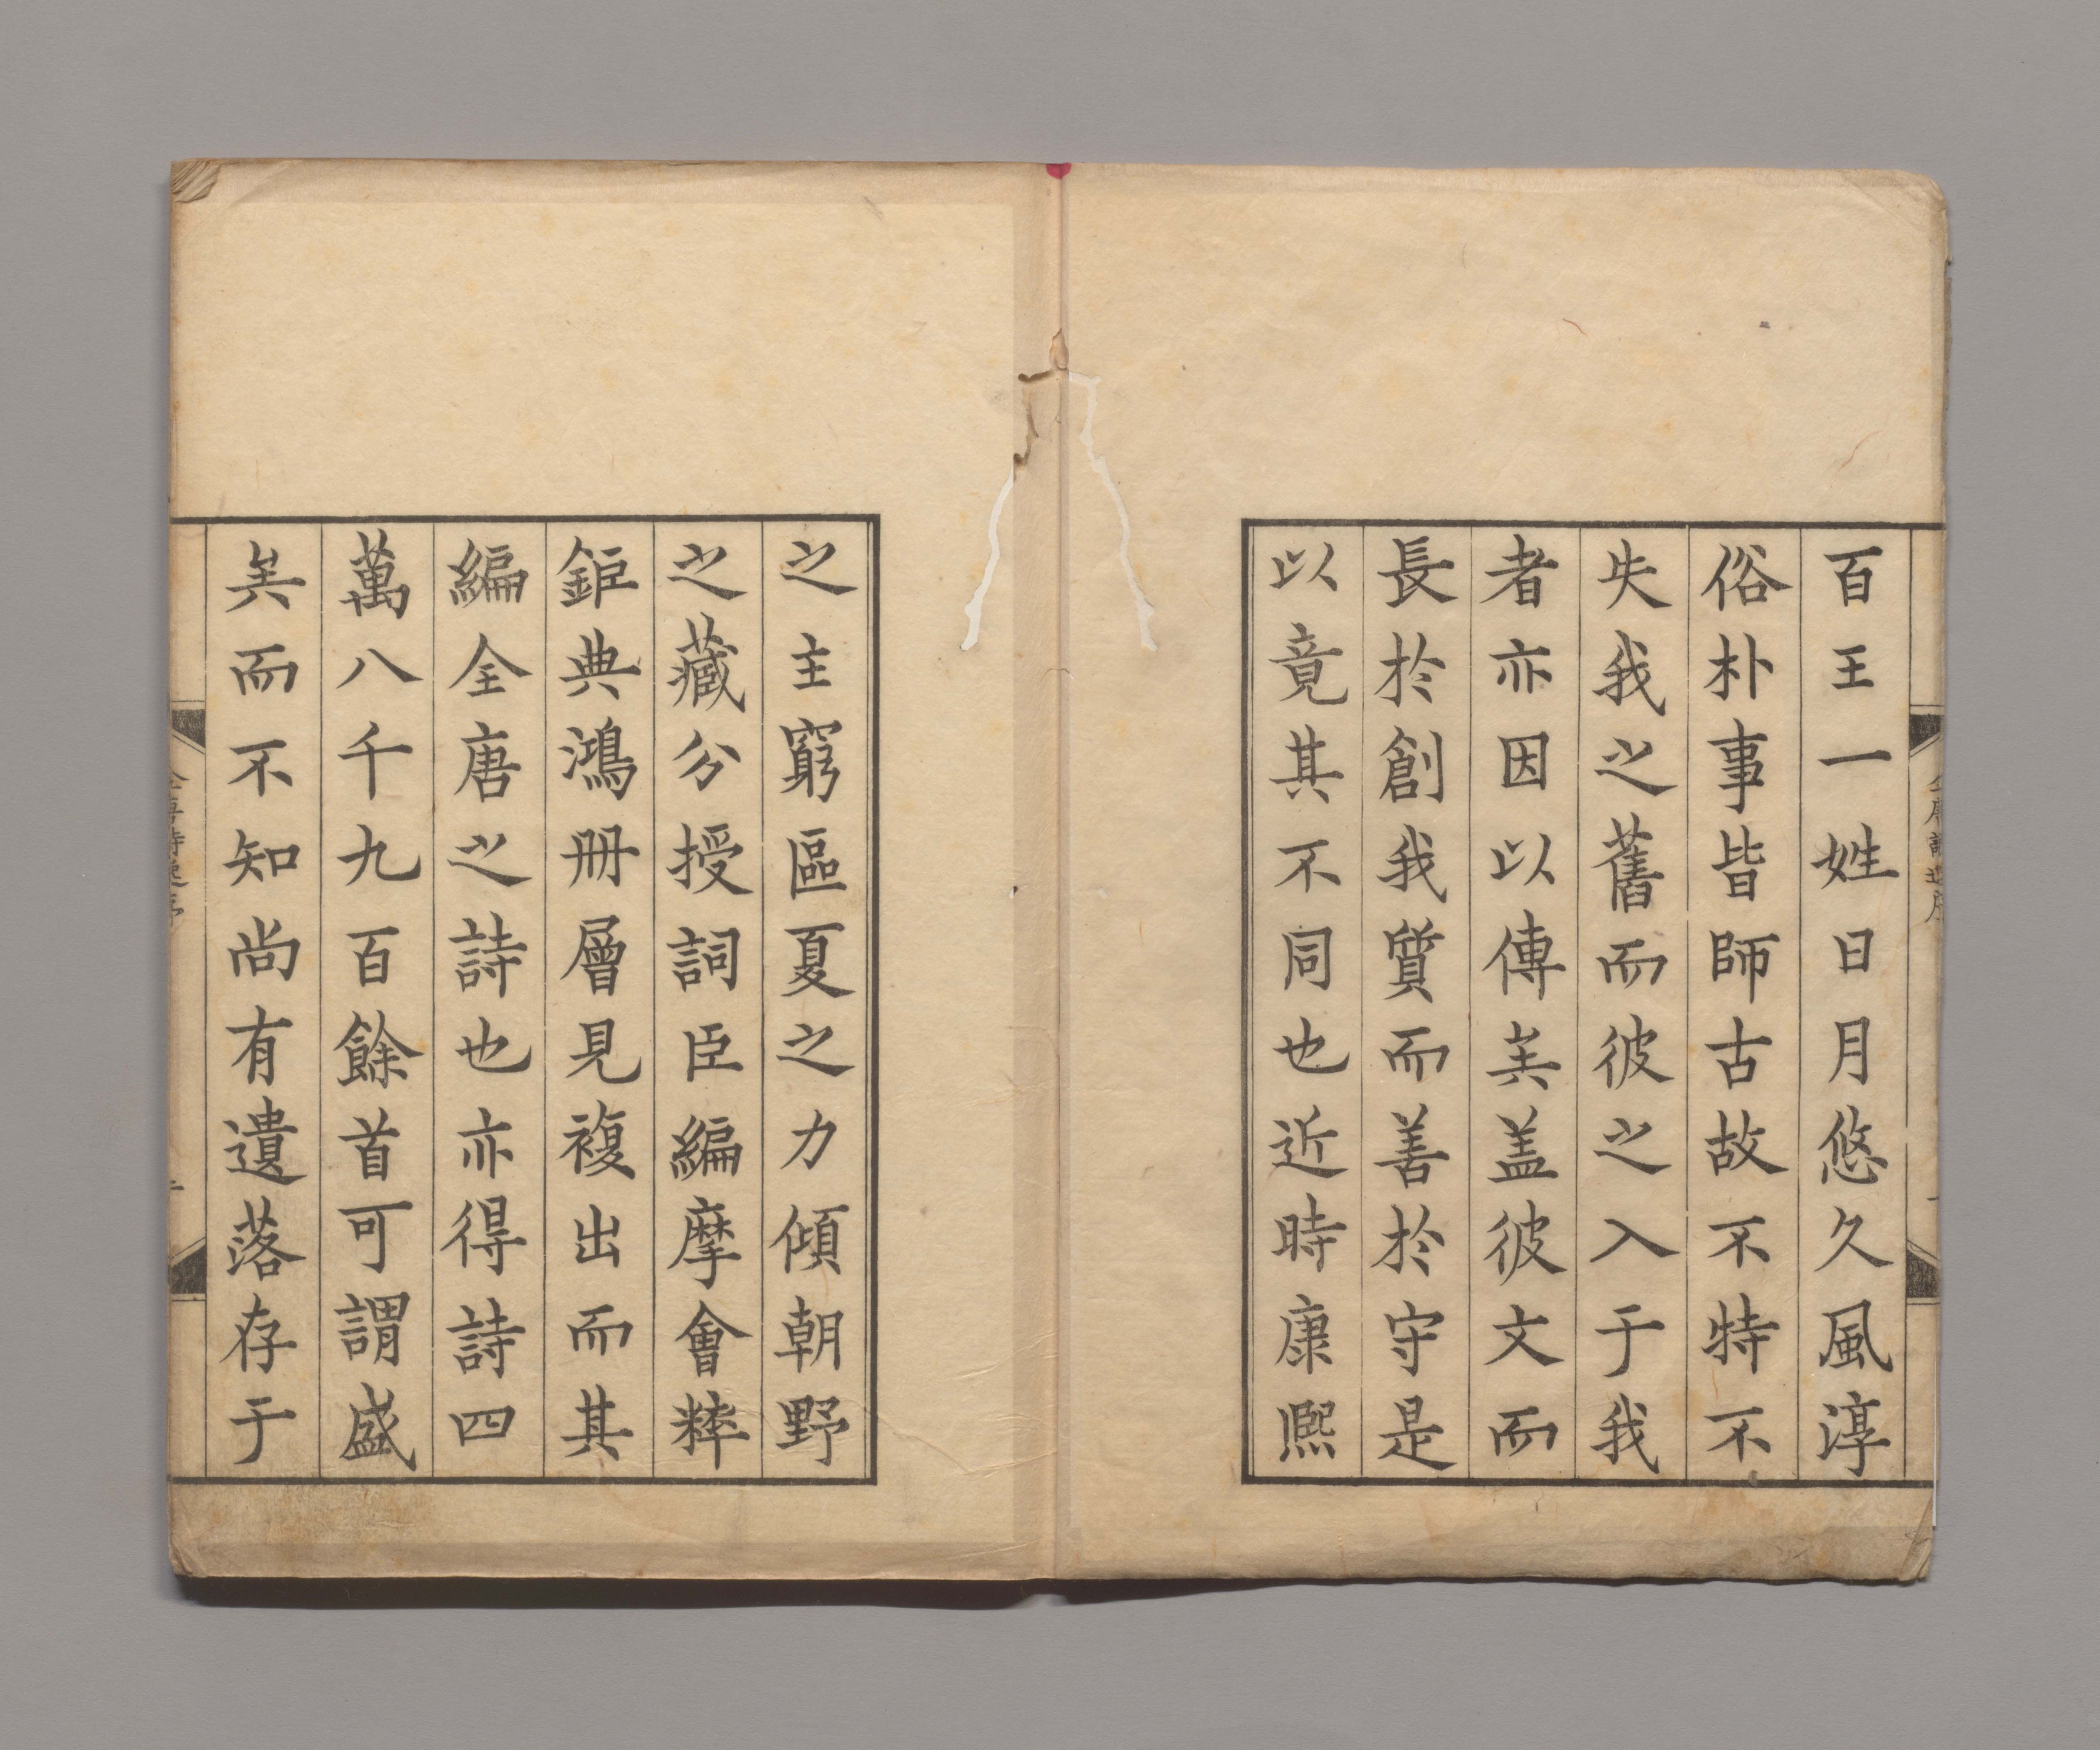 百王一姓日月悠久風淳
俗朴事皆師古故不特不
失我之舊而彼之入于我
者亦因以傳矣盖彼文而
長於創我質而善於守是
以竟其不同也近時康熙
之主窮區夏之力傾朝野
之藏分授詞臣編摩會粹
鉅典鴻册層見複出而其
編全唐之詩也亦得詩四
萬八千九百餘首可謂盛
矣而不知尚有遺落存于